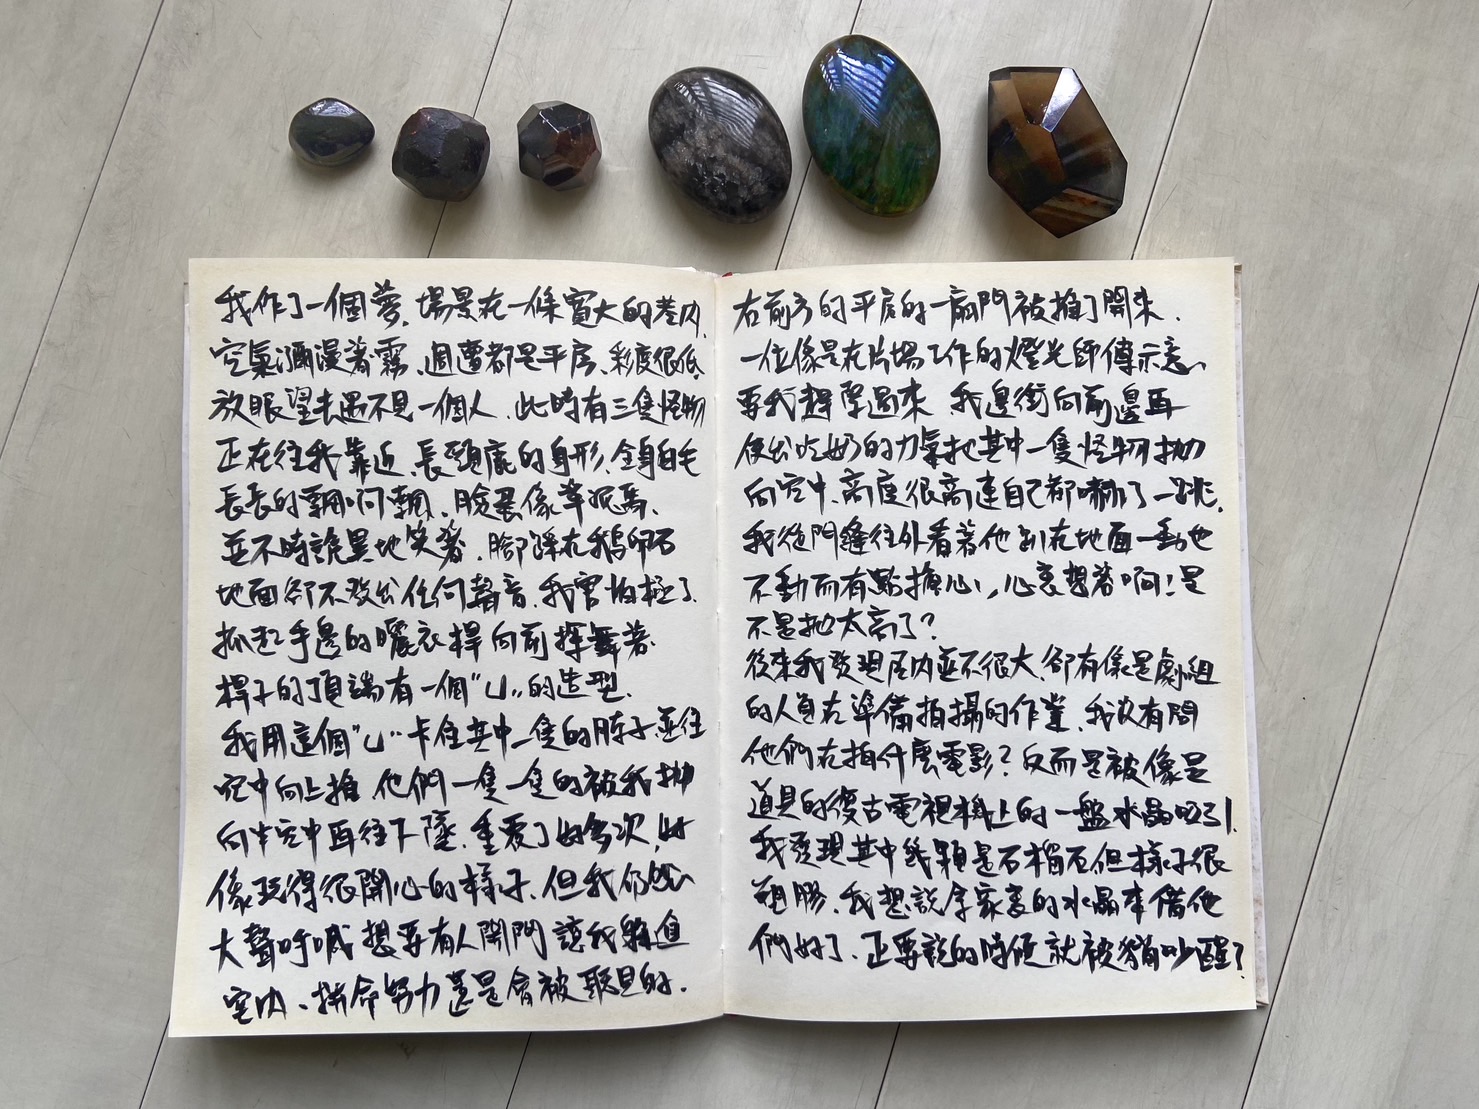 我作了一個夢、場景在一條寬大的巷內、
空氣瀰漫著霧、週遭都是平房、彩度很低、
放眼望去遇不見一個人、此時有三隻怪物
正在往我靠近、長頸鹿的身形、全身白毛
長長的飄啊飄、臉蛋像草泥馬、
並不時詭異地笑著、腳踩在鵝卵石
地面卻不發出任何聲音、我害怕極了、
抓起手邊的曬衣桿向前揮舞著、
桿子的頂端有一個"U"的造型、
我用這個"U"卡住其中一隻的脖子並往
空中向上推、他們一隻一隻的被我拋
向半空中再往下墜、重覆了好多次、好
像玩得很開心的樣子、但我仍然
大聲呼喊想要有人開門讓我躲進
室內、拼命努力還是會被聽見的、
右前方的平房的一扇門被推了開來、
一位像是在片場工作的燈光師傅示意、
要我趕緊過來、我邊衝向前邊再
使出吃奶的力氣把其中一隻怪物拋
向空中、高度很高連自己都嚇了一跳、
我從門縫往外看著他趴在地面一動也
不動而有點擔心、心裏想著啊！是
不是拋太高了？
後來我發現屋內並不很大、卻有像是劇組
的人員在準備拍攝的作業、我沒有問
他們在拍什麼電影？反而是被像是
道具的復古電視機上的一盤水晶吸引、
我發現其中幾顆是石榴石、但樣子很
塑膠、我想說拿家裏的水晶來借他
們好了、正要說的時候就被貓吵醒了